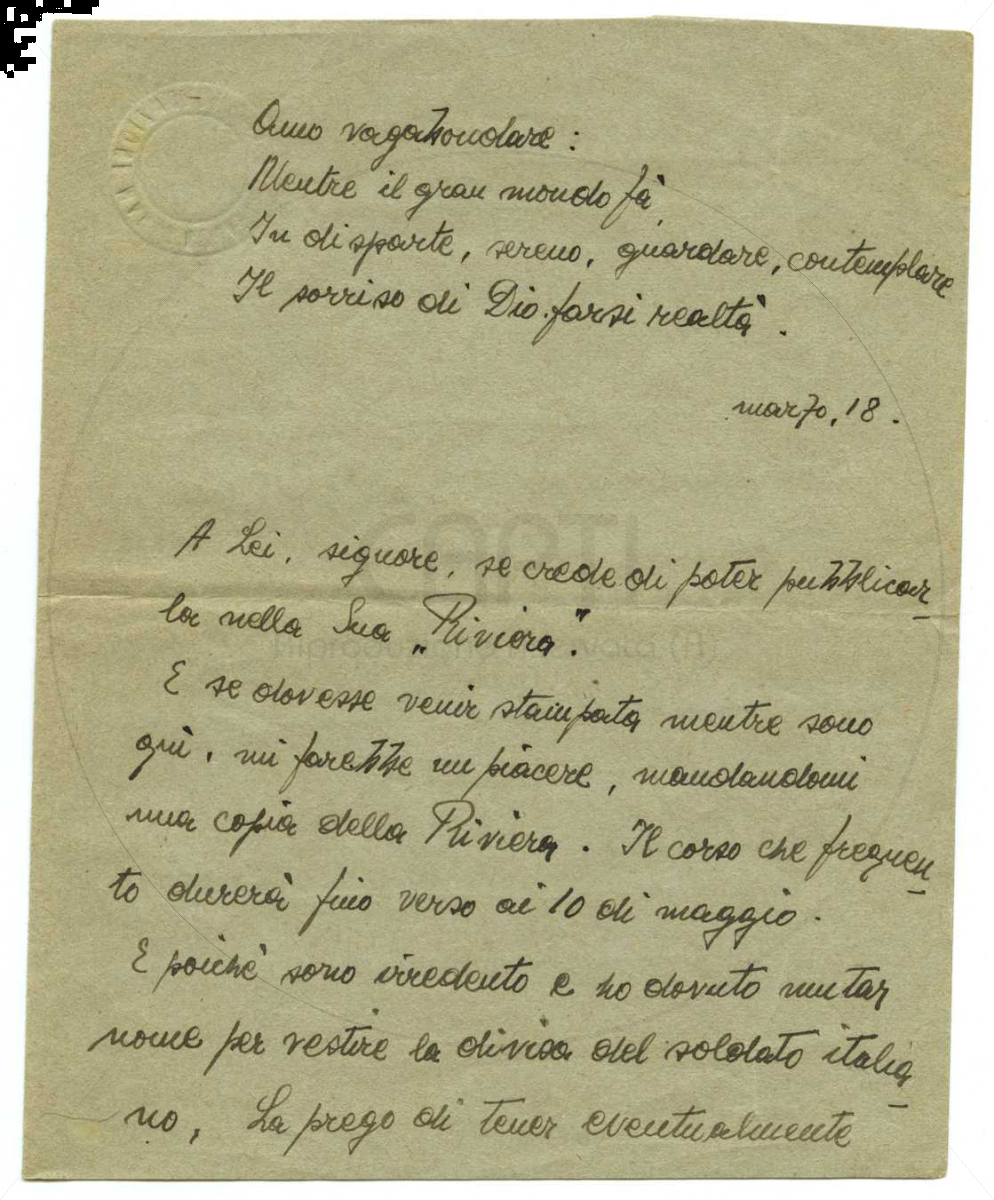 Amo vagabondare:
Mentre il gran mondo fà
In disparte, sereno, guardare, contemplare
Il sorriso di Dio farsi realtà.
marzo, 18.
A Lei, signore, se crede di poter pubblicar-
la nella Sua „Riviera".
E se dovesse venir stampata mentre sono
quì, mi farebbe un piacere, mandandomi
una copia della Riviera. Il corso che frequen-
to durerà fino verso ai 10 di maggio.
E poichè sono irredento e ho dovuto mutar
nome per vestire la divisa del soldato italia-
no, La prego di tener eventualmente